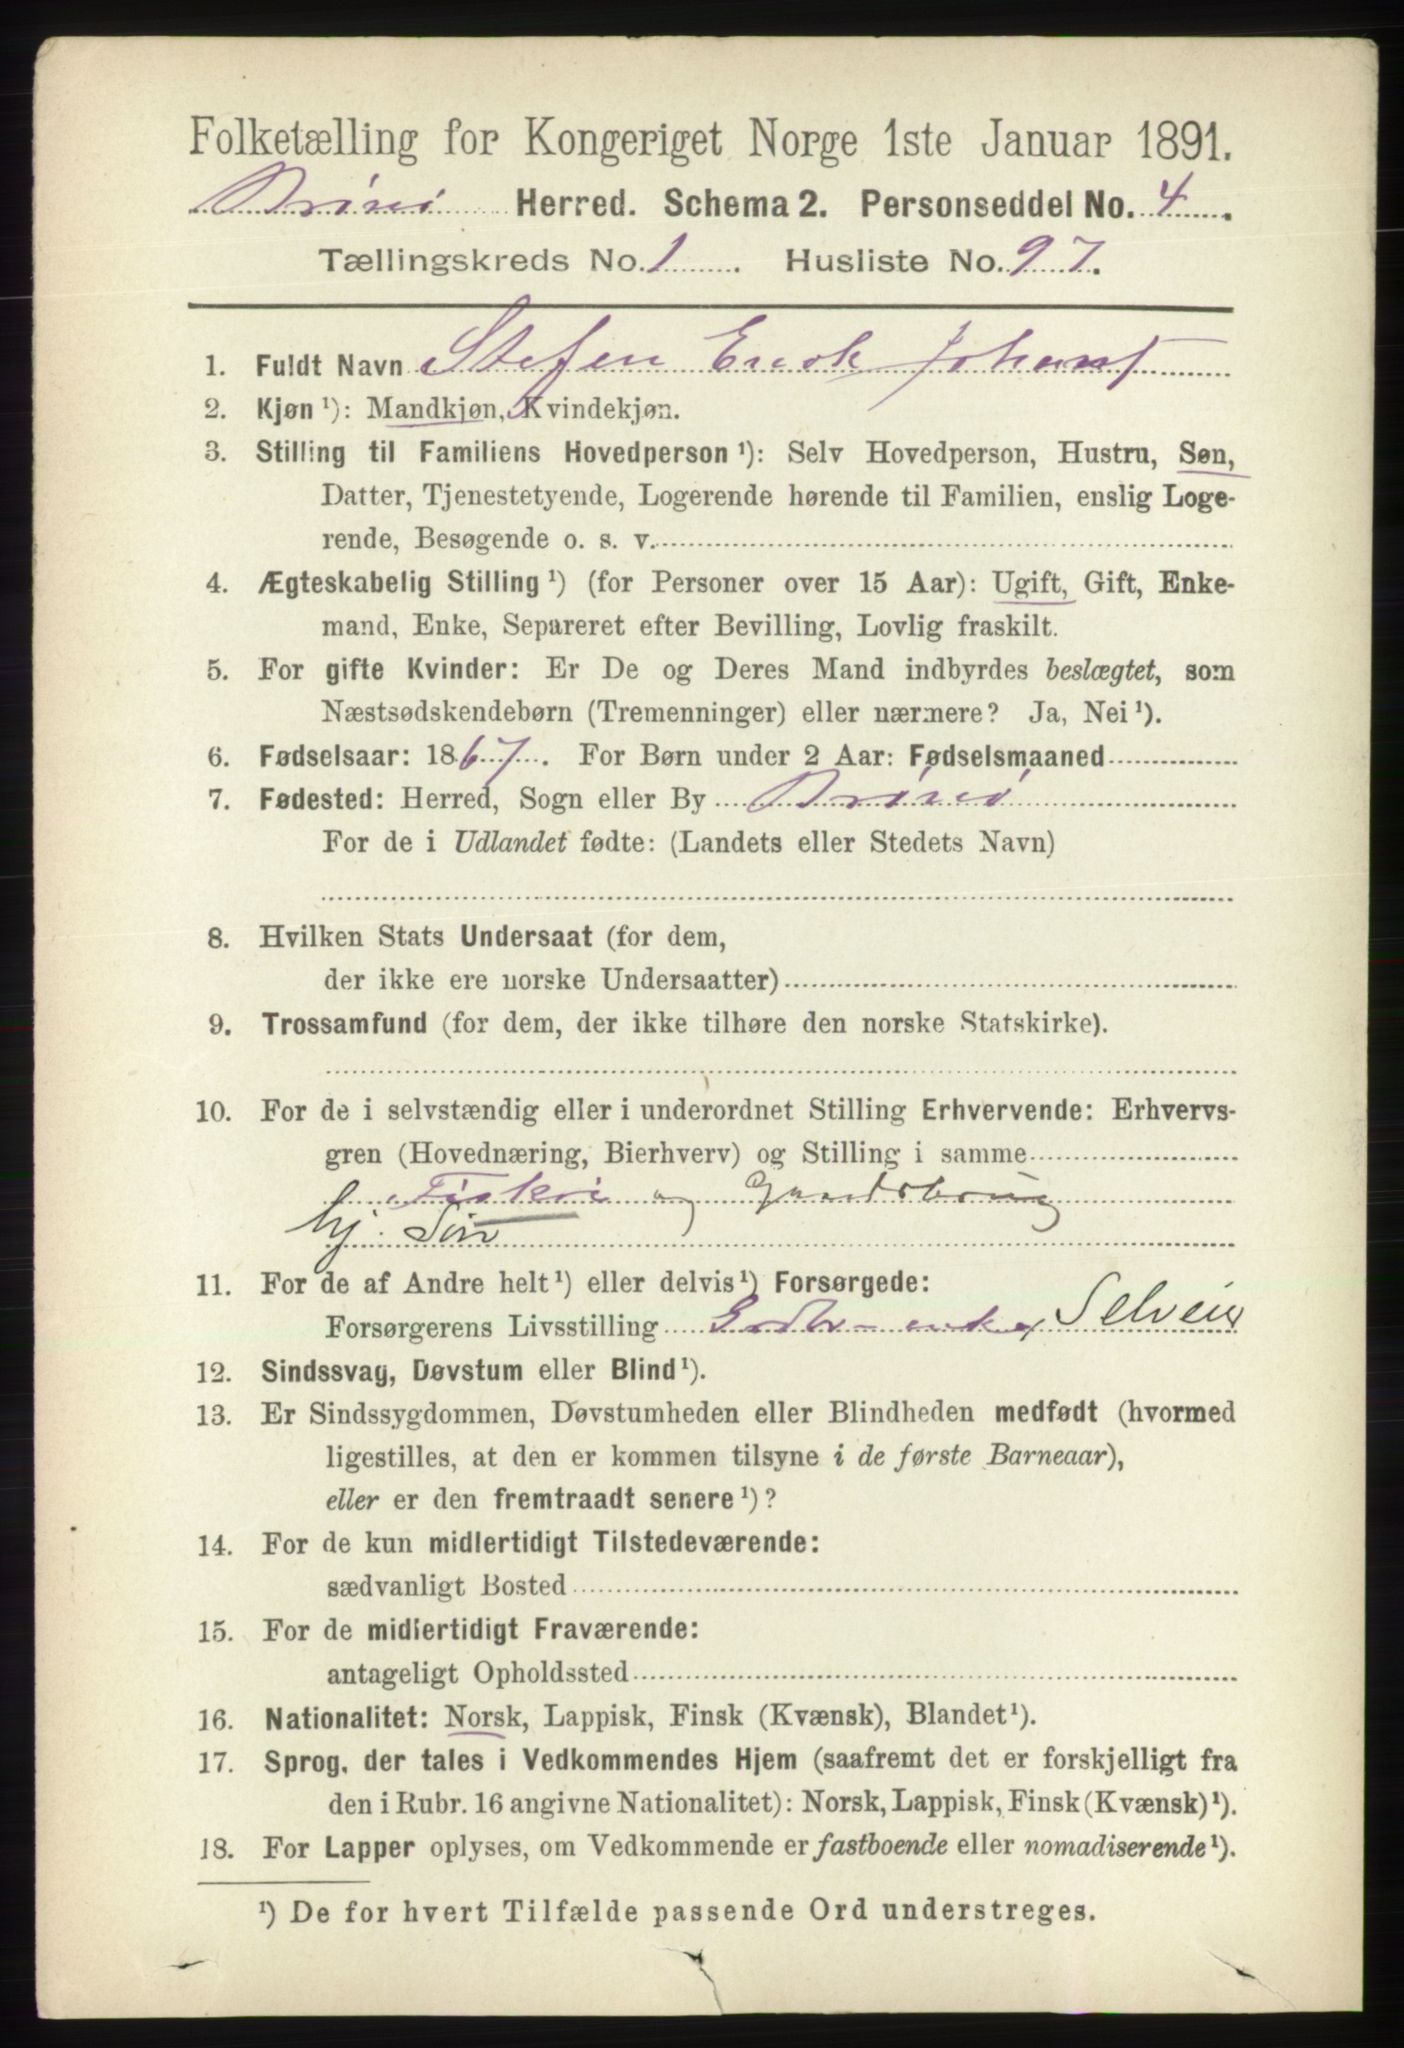 Folketælling for Kongeriget Norge 1ste Januar 1891.
Brønø Herred. Schema 2. Personseddel No. 4.
Tællingskreds No. 1. Husliste No. 97.
1. Fuldt Navn Stefen Erick Johans
2. Kjøn ¹): Mandkjøn, Kvindekjøn.
3. Stilling til Familiens Hovedperson ¹): Selv Hovedperson, Hustru, Søn,
Datter, Tjenestetyende, Logerende hørende til Familien, enslig Loge-
rende, Besøgende o. s. v.
4. Ægteskabelig Stilling ¹) (for Personer over 15 Aar): Ugift, Gift, Enke-
mand, Enke, Separeret efter Bevilling, Lovlig fraskilt.
5. For gifte Kvinder: Er De og Deres Mand indbyrdes beslægtet, som
Næstsødskendebørn (Tremenninger) eller nærmere? Ja, Nei ¹).
6. Fødselsaar: 1867. For Børn under 2 Aar: Fødselsmaaned
7. Fødested: Herred, Sogn eller By Brønø
For de i Udlandet fødte: (Landets eller Stedets Navn)
8. Hvilken Stats Undersaat (for dem,
der ikke ere norske Undersaatter)
9. Trossamfund (for dem, der ikke tilhøre den norske Statskirke).
10. For de i selvstændig eller i underordnet Stilling Erhvervende: Erhvervs-
gren (Hovednæring, Bierhverv) og Stilling i samme
Fiskeri og Gaardsbrug
hj. Søn
11. For de af Andre helt ¹) eller delvis ¹) Forsørgede:
Forsørgerens Livsstilling Selveier
12. Sindssvag, Døvstum eller Blind ¹).
13. Er Sindssygdommen, Døvstumheden eller Blindheden medfødt (hvormed
ligestilles, at den er kommen tilsyne i de første Barneaar),
eller er den fremtraadt senere ¹)?
14. For de kun midlertidigt Tilstedeværende:
sædvanligt Bosted
15. For de midlertidigt Fraværende:
antageligt Opholdssted
16. Nationalitet: Norsk, Lappisk, Finsk (Kvænsk), Blandet ¹).
17. Sprog, der tales i Vedkommendes Hjem (saafremt det er forskjelligt fra
den i Rubr. 16 angivne Nationalitet): Norsk, Lappisk, Finsk (Kvænsk) ¹).
18. For Lapper oplyses, om Vedkommende er fastboende eller nomadiserende ¹).
¹) De for hvert Tilfælde passende Ord understreges.